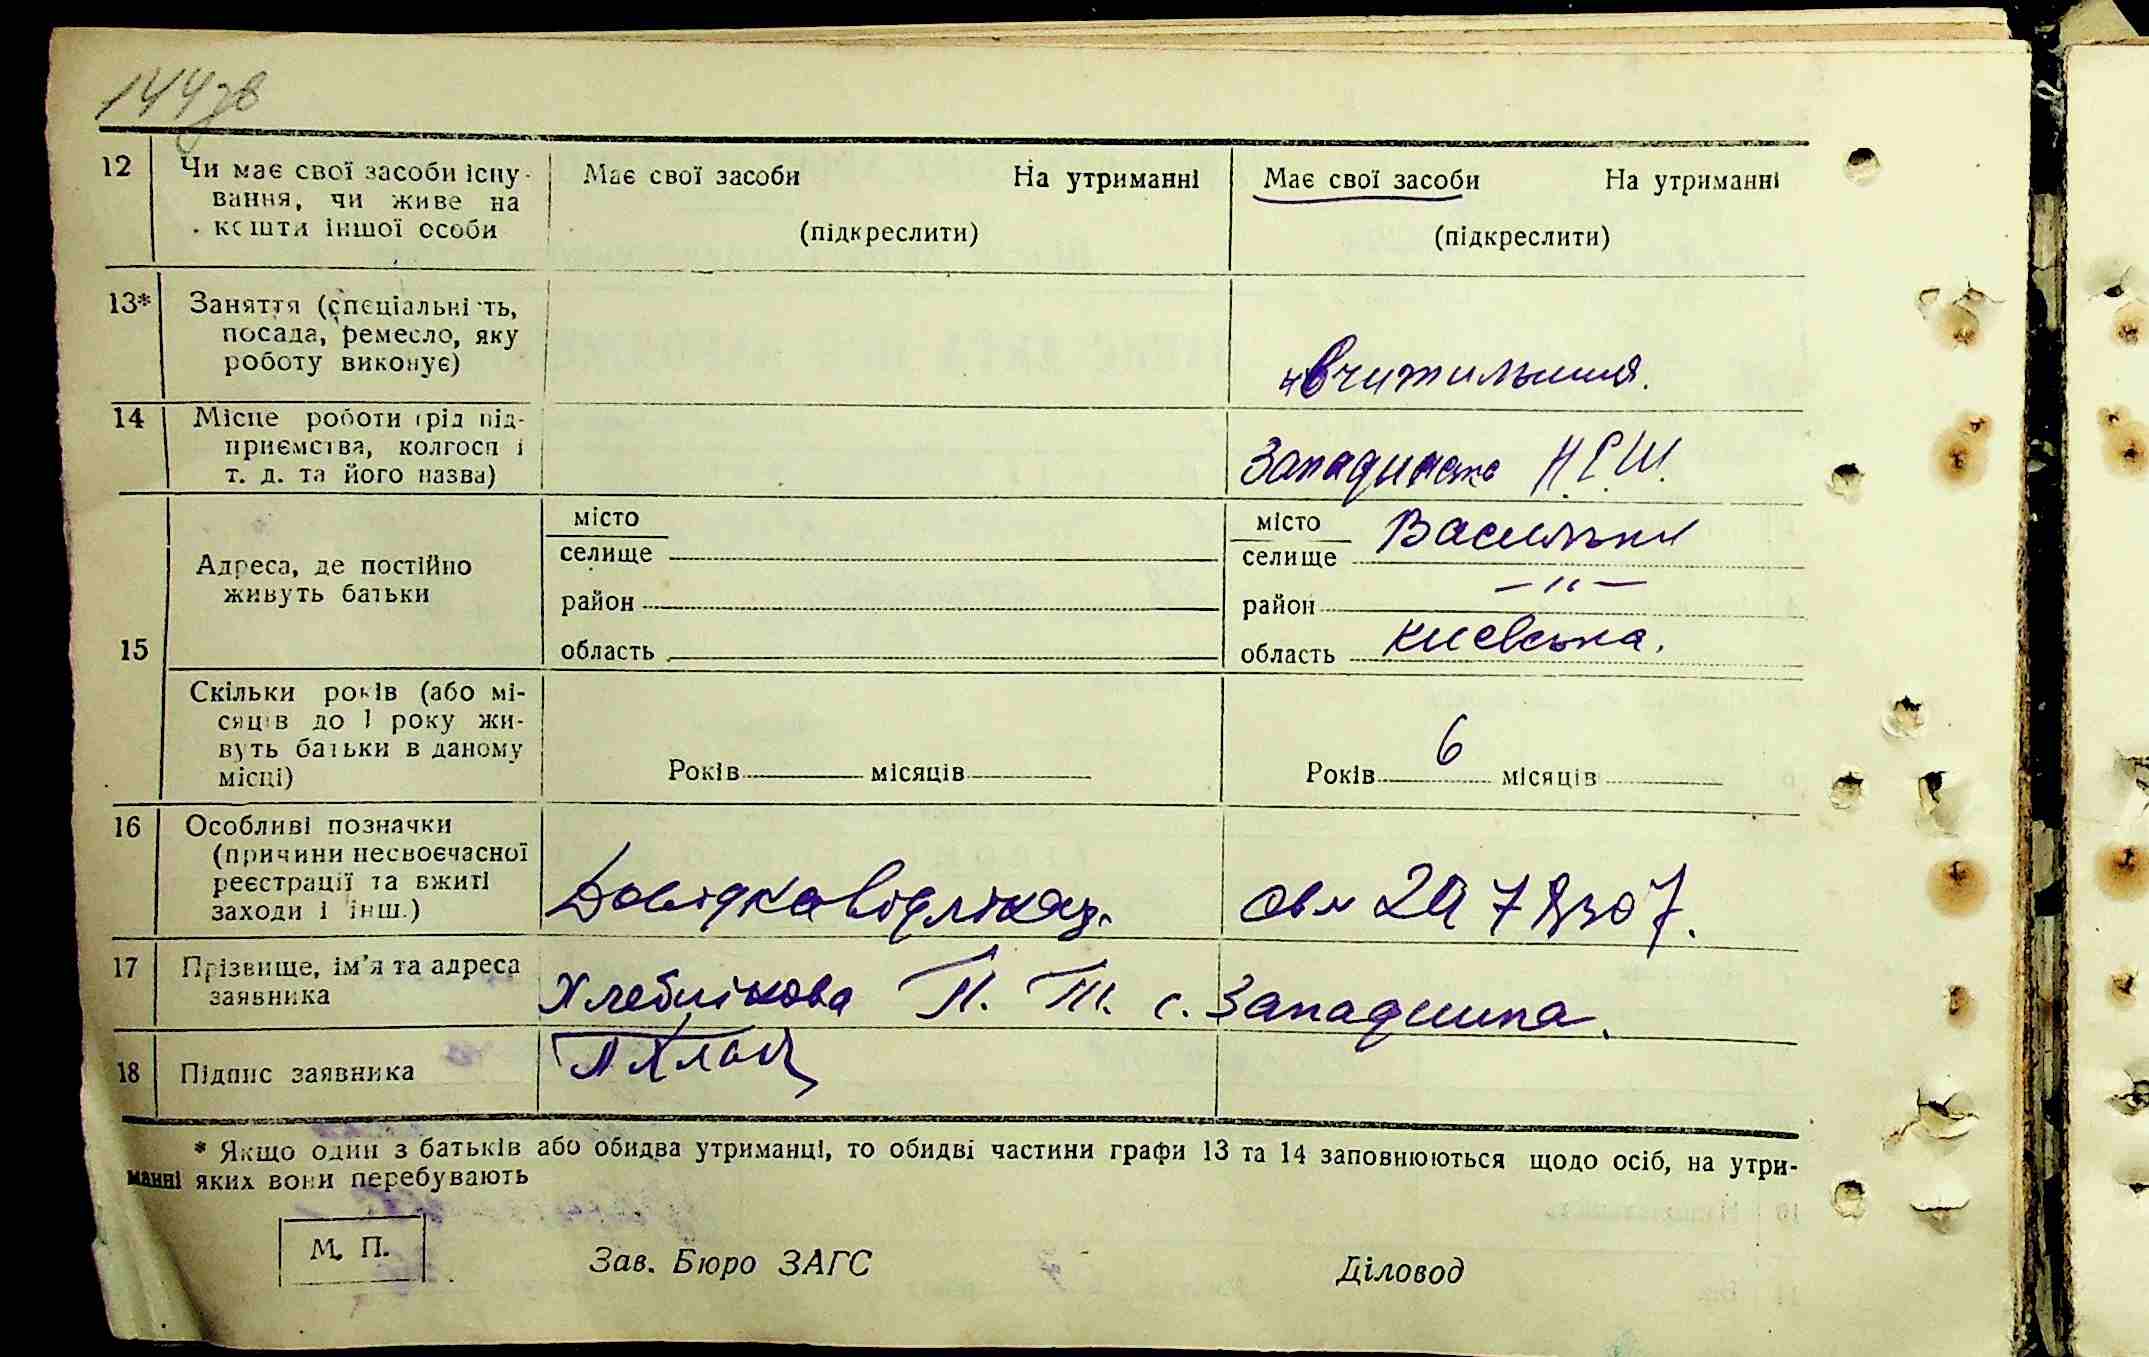 144зв
12 Чи має свої засоби існу- Має свої засоби На утриманні Має свої засоби На утриманні
вання, чи живе на
кошти іншої особи (підкреслити) (підкреслити)
13* Заняття (спеціальність,
посада, ремесло, яку
роботу виконує) Вчителька.
14 Місце роботи (рід під-
приємства, колгосп і Западинська Н.С.Ш.
т. д. та його назва)
місто місто Васильків
селище селище
Адреса, де постійно
живуть батьки район район —〃—
15 область область Київська.
Скільки років (або мі-
сяців до 1 року жи-
вуть батьки в даному
місці) Років місяців Років 6 місяців
16 Особливі позначки
(причини несвоєчасної
реєстрації та вжиті
заходи і інш.) Довідка від ліказ.
17 Прізвище, ім'я та адреса
заявника Хлебнікова П. Т. с. Западинка.
18 Підпис заявника
* Якщо один з батьків або обидва утриманці, то обидві частини графи 13 та 14 заповнюються щодо осіб, на утри-
манні яких вони перебувають
М. П. Зав. Бюро ЗАГС Діловод